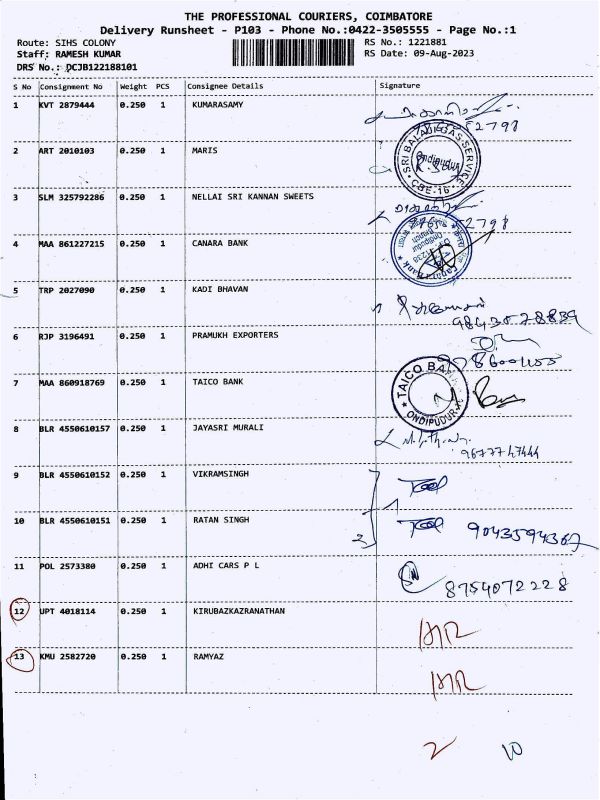 THE PROFESSIONAL COURIERS, COIMBATORE
Delivery Runsheet - P103 - Phone No.:0422-3505555 - Page No.:1
Route: SIHS COLONY RS No.: 1221881
Staff: RAMESH KUMAR RS Date: 09-Aug-2023
DRS No.: DCJB122188101
S No Consignment No Weight PCS Consignee Details Signature
1 KVT 2879444 0.250 1 KUMARASAMY
52798
2 ART 2010103 0.250 1 MARIS
SRI BALAJI GAS SERVICE Ondipudur CBE-16
3 SLM 325792286 0.250 1 NELLAI SRI KANNAN SWEETS
52798
4 MAA 861227215 0.250 1 CANARA BANK
Canara Bank Ondipudur Branch
5 TRP 2027090 0.250 1 KADI BHAVAN
9843528839
6 RJP 3196491 0.250 1 PRAMUKH EXPORTERS
7 MAA 860918769 0.250 1 TAICO BANK
TAICO BANK ONDIPUDUR
8 BLR 4550610157 0.250 1 JAYASRI MURALI
9677747444
9 BLR 4550610152 0.250 1 VIKRAMSINGH
10 BLR 4550610151 0.250 1 RATAN SINGH
2 9043594367
11 POL 2573380 0.250 1 ADHI CARS P L
8754072228
12 UPT 4018114 0.250 1 KIRUBAZKAZRANATHAN
13 KMU 2582720 0.250 1 RAMYAZ
2 10